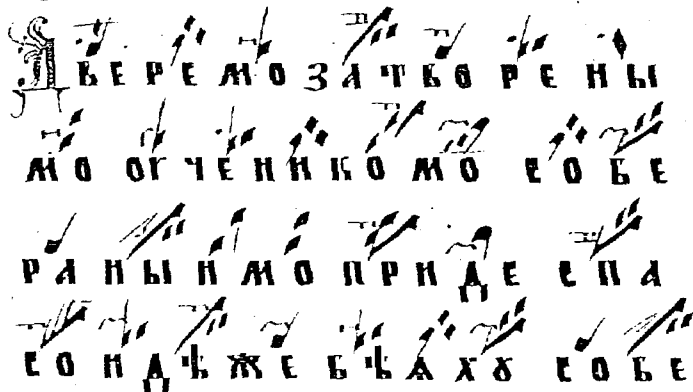 ДВЕРЕМО ЗАТВОРЕНЫ
МО ОУЧЕНИКОМО СОБЕ
РАНЫИМО ПРИДЕ СПА
СО ИДѢЖЕ БѢѦХꙊ СОБЕ